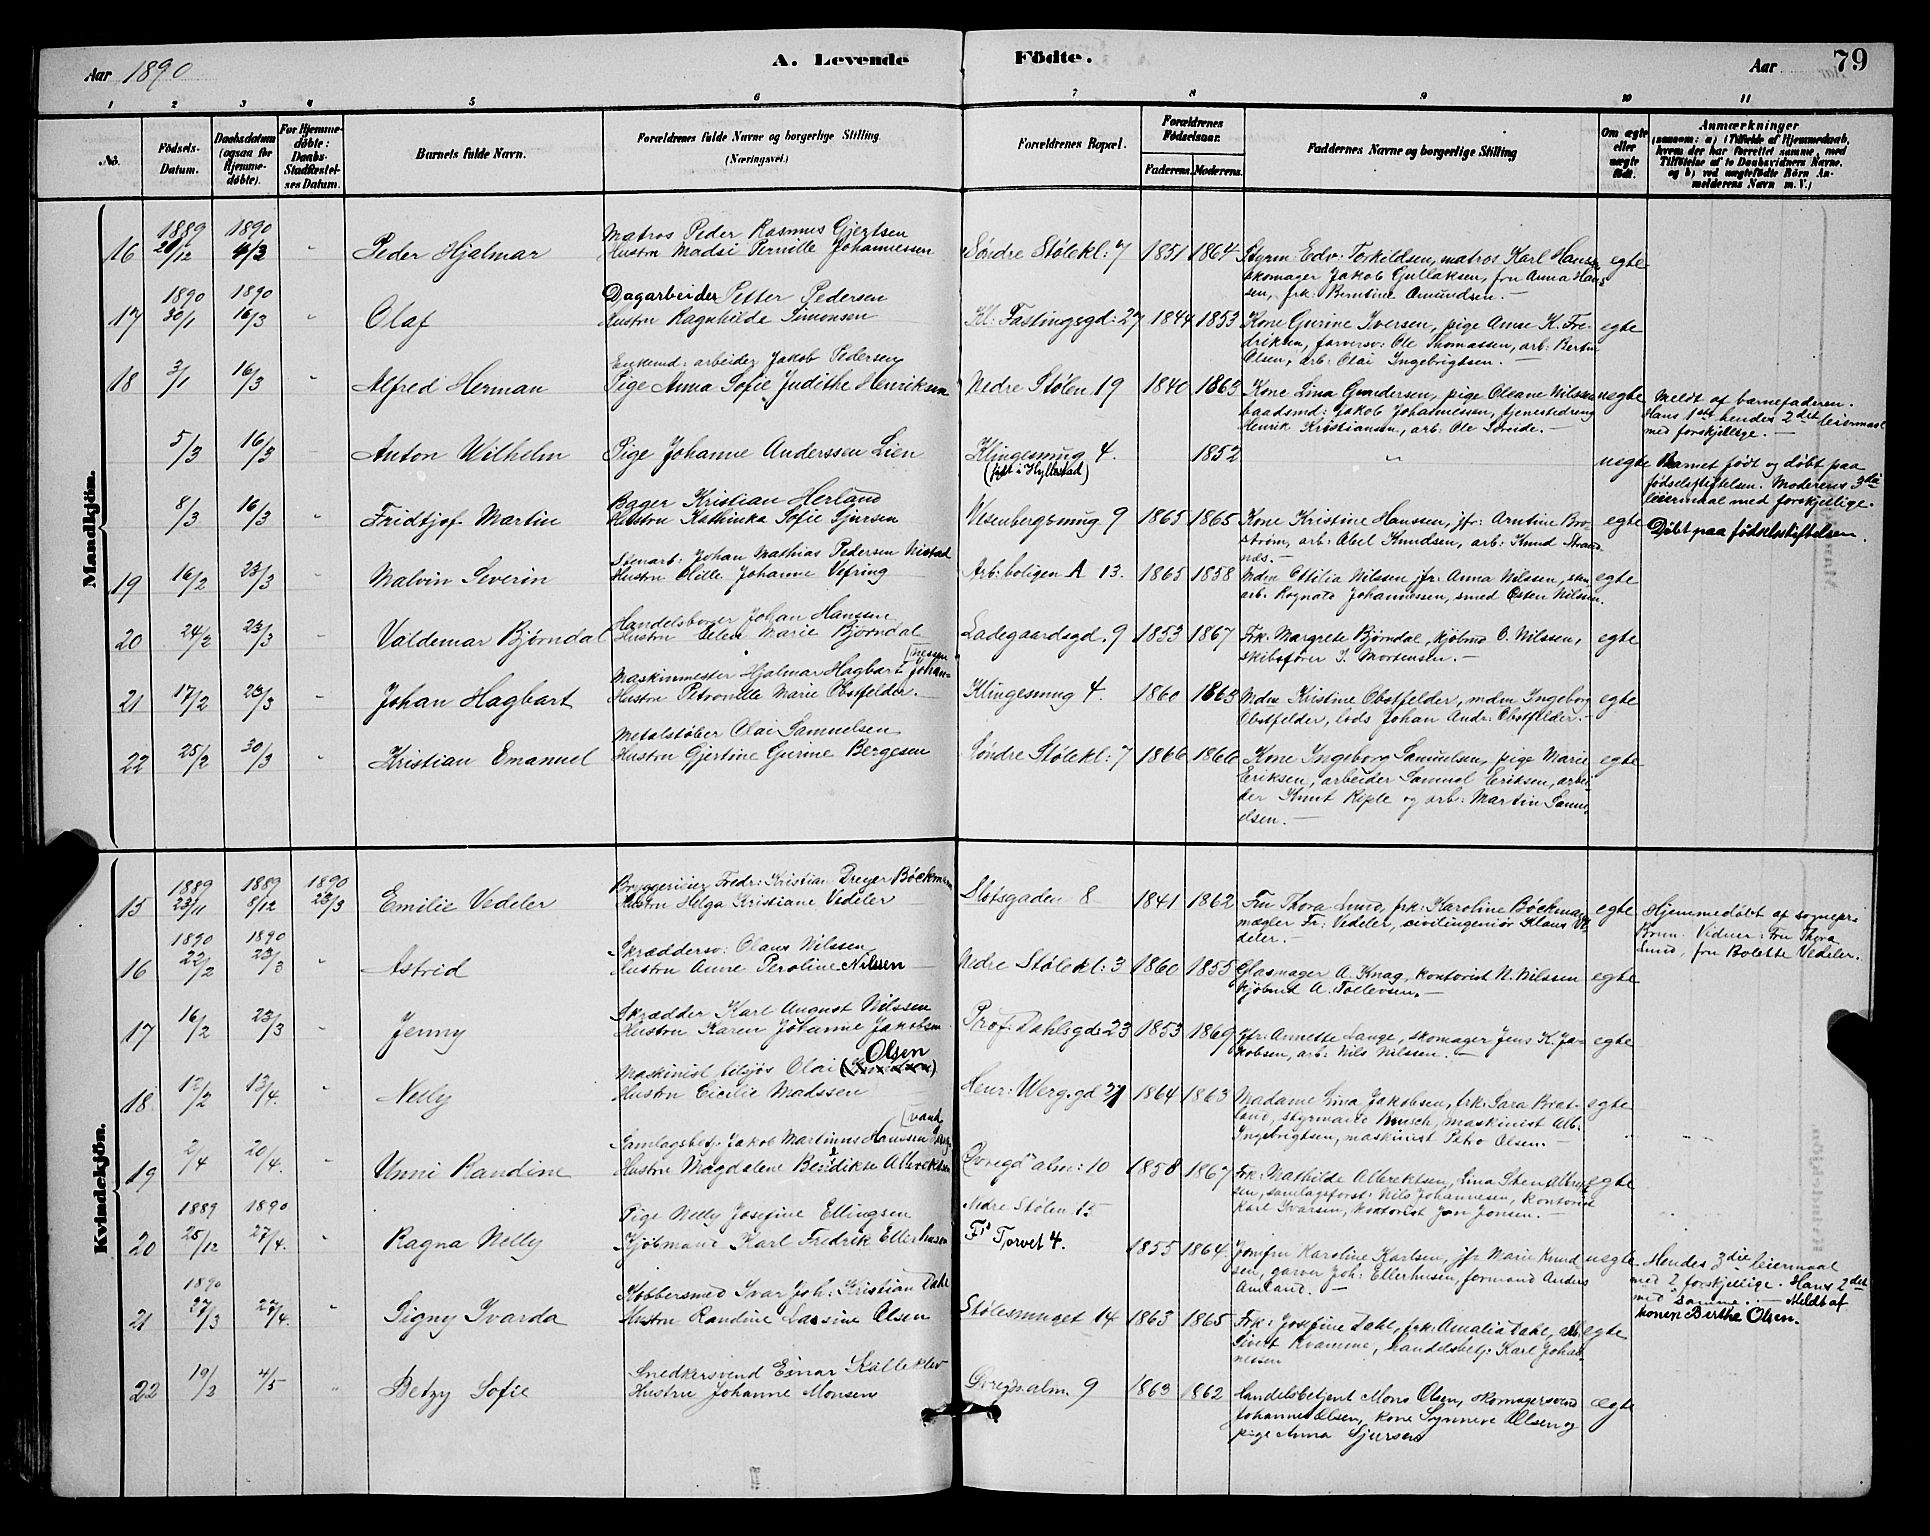 Aar 1890
A. Levende
Födte.
Aar
79
1 2 3 4 5 6 7 8 9 10 11
No.
Födsels-Datum.
Daabsdatum (ogsaa for Hjemmedöbte).
For Hjemmedöbte: Daabs-Stadfæstelses Datum.
Barnets fulde Navn.
Forældrenes fulde Navne og borgerlige Stilling (Næringsvei.)
Forældrenes Bopæl.
Forældrenes Fødselsaar.
Faderens. Moderens.
Faddernes Navne og borgerlige Stilling
Om ægte eller uægte født.
Anmærkninger
(saasom: a) i Tilfælde af Hjemmedaab, hvem der har forrettet samme, med Tilføielse af to Daabsvidners Navne, og b) ved uægtefødte Börn Anmelderens Navn m. V.)
Mandkjön.
1889 1890
Matros Peder Rasmus Gjertsen
16 4/3 Peder Hjalmar Hustru Madsi Pernille Johannessen Søndre Stølekl: 7 1851 1864 Styrm: Edv: Torkildsen, matros Karl Hansen egte
skomager Jakob Gullaksen, fru Anna Han-
sen, frk: Berntine Amundsen. —
1890 1890
Dagarbeider Petter Pedersen
17 30/1 16/3 Olaf Hustru Ragnhilde Simonsen Kl: Fastingsgd: 27 1844 1853 Kone Gurine Iversen, pige Anne K. Fre- egte
driksen, farversv: Ole Thomassen, arb: Bertin
Olsen, arb: Olai Ingebrigtsen. —
Enkemd: arbeider Jakob Pedersen
18 3/1 16/3 Alfred Herman Pige Anna Sofie Judithe Henriksen Nedre Stølen 19 1840 1863 Kone Lina Gundersen, pige Oleane Nilssen uegte Meldt af barnefaderen.
baadsmd: Jakob Johannessen, tjenestedreng Hans 1ste hendes 2det leiermaal
Henrik Kristiansen, arb: Ole Soreide. — med forskjellige. —
5/3 16/3 Anton Wilhelm Pige Johanne Anderssen Lien Klingesmug 4. 1852 " uegte Barnet født og døbt paa
(født i Hyllestad) fødselsstiftelsen. Moderens 3die
leiermaal med forskjellige.
Bager Kristian Herland
8/3 16/3 Fridtjof Martin Hustru Kathinka Sofie Sjursen Wesenbergsmug 9 1865 1865 Kone Kristine Hanssen, jfr: Arntine Bro- egte Døbt paa fødselsstiftelsen.
strøm, arb: Abel Knudsen, arb: Knud Strand-
næs. —
Stenarb: Johan Mathias Pedersen Nistad
19 16/2 23/3 Malvin Severin Hustru Olille Johanne Vefring Arb: boligen A 13. 1865 1858 Mdm Ottilia Nilssen jfr: Anna Nilssen, sten- egte
arb: Rognald Johannessen, smed Osten Nilssen.
Handelsborger Johan Hansen
20 24/2 23/3 Valdemar Bjørndal Hustru Elen Marie Bjørndal Ladegaardsgd. 9 1853 1867 Frk: Margrete Bjørndal, kjøbmd O. Nilssen, egte
skibsfører J. Mortensen. —
[nessen
Maskinmester Hjalmar Hagbart Johan-
21 17/2 23/3 Johan Hagbart Hustru Petronille Marie Obstfelder. Klingesmug 4. 1860 1863 Mdm Kristine Obstfelder, mdm Ingeborg egte
Obstfelder, lods Johan Andr: Obstfelder. —
Metalstøber Olai Samuelsen
22 25/2 30/3 Kristian Emanuel Hustru Gjertine Gurine Bergesen Søndre Stølekl: 7 1866 1866 Kone Ingeborg Samuelsen, pige Marie egte
Eriksen, arbeider Samuel Eriksen, arbei-
der Knut Riple og arb: Martin Samu-
elsen. —
Kvindekjön.
1889 1889 1890
Bryggerieier Fredr: Kristian Dreyer Böckmann
15 23/11 8/12 23/3 Emilie Vedeler Hustru Helga Kristiane Vedeler Slotsgaden 8 1841 1862 Fru Thora Smid, frk: Karoline Böckman egte Hjemmedøbt af sognepr:
mægler Fr: Vedeler, civilingeniør Klaus Ve- Krun. Vidner: Fru Thora
deler. — Smid, fru Bolette Vedeler.
1890 1890
Skræddersv: Olaus Nilssen
16 22/2 23/3 Astrid Hustru Anne Peroline Nilsen Nedre Stølekl: 3 1860 1855 Glasmager A. Knag, kontorist N. Nilssen egte
kjøbmd A. Tollevsen. —
Skrædder Karl August Nilssen
17 16/2 23/3 Jenny Hustru Karen Johanne Jakobsen Prof: Dahlsgd: 23 1853 1869 Jfr: Annette Lange, skomager Jens K. Ja- egte
kobsen, arb: Nils Nilssen. —
Olsen
Maskinist tilsjøs Olai
18 12/2 13/4. Nelly Hustru Cicilie Madssen Henr: Wergsgd 31 1864 1863 Madame Lina Jakobsen, frk: Sara Bret- egte
land, styrmand Bunsch, maskinist Alb.
Ingebrigtsen, maskinist Petro Olsen. —
Samlagsbetj. Jakob Martinus Hansen
19 2/4 20/4. Unni Randine Hustru Magdalene Bendikte Albrektsen Øvregds alm: 10 1858 1867 Frk: Mathilde Albrektsen, Lina Sten Albrekt- egte
sen, samlagsforst: Nils Johannesen, kontorist
Karl Ivarsen, kontorist Jon Jonsen. —
1889 1890
Pige Nelly Josefine Ellingsen Nedre Stølen 15
20 25/12 27/4. Ragna Nelly Kjøbmand Karl Fredrik Ellerhusen Fs Torvet 4. 1855 1864. Jomfru Karoline Karlsen, jfr Marie Knud- uegte Hendes 3die leiermaal
sen, garver Joh: Ellerhusen, formand Anders med 2 forskjellige. Hans 2det
Amland. — med samme. — Meldt af
konen Berthe Olsen.
1890
Kobbersmed Ivar Joh: Kristian Dahl
21 27/3 27/4. Signy Ivarda Hustru Randine Lassine Olsen Stølesmuget 14 1863 1865 Frk: Josefine Dahl, frk: Amalia Dahl, egte
Sivert Kvamme, handelsbetj. Karl Johan-
nessen
Snedkersvend Einar Kalleklev
22 19/3 4/5 Betzy Sofie Hustru Johanne Monsen Øvregds alm. 9 1863 1862 Handelsbetjent Mons Olsen, skomagersvend ægte
Johannes Olsen, kone Synneve Olsen og
pige Anna Sjursen